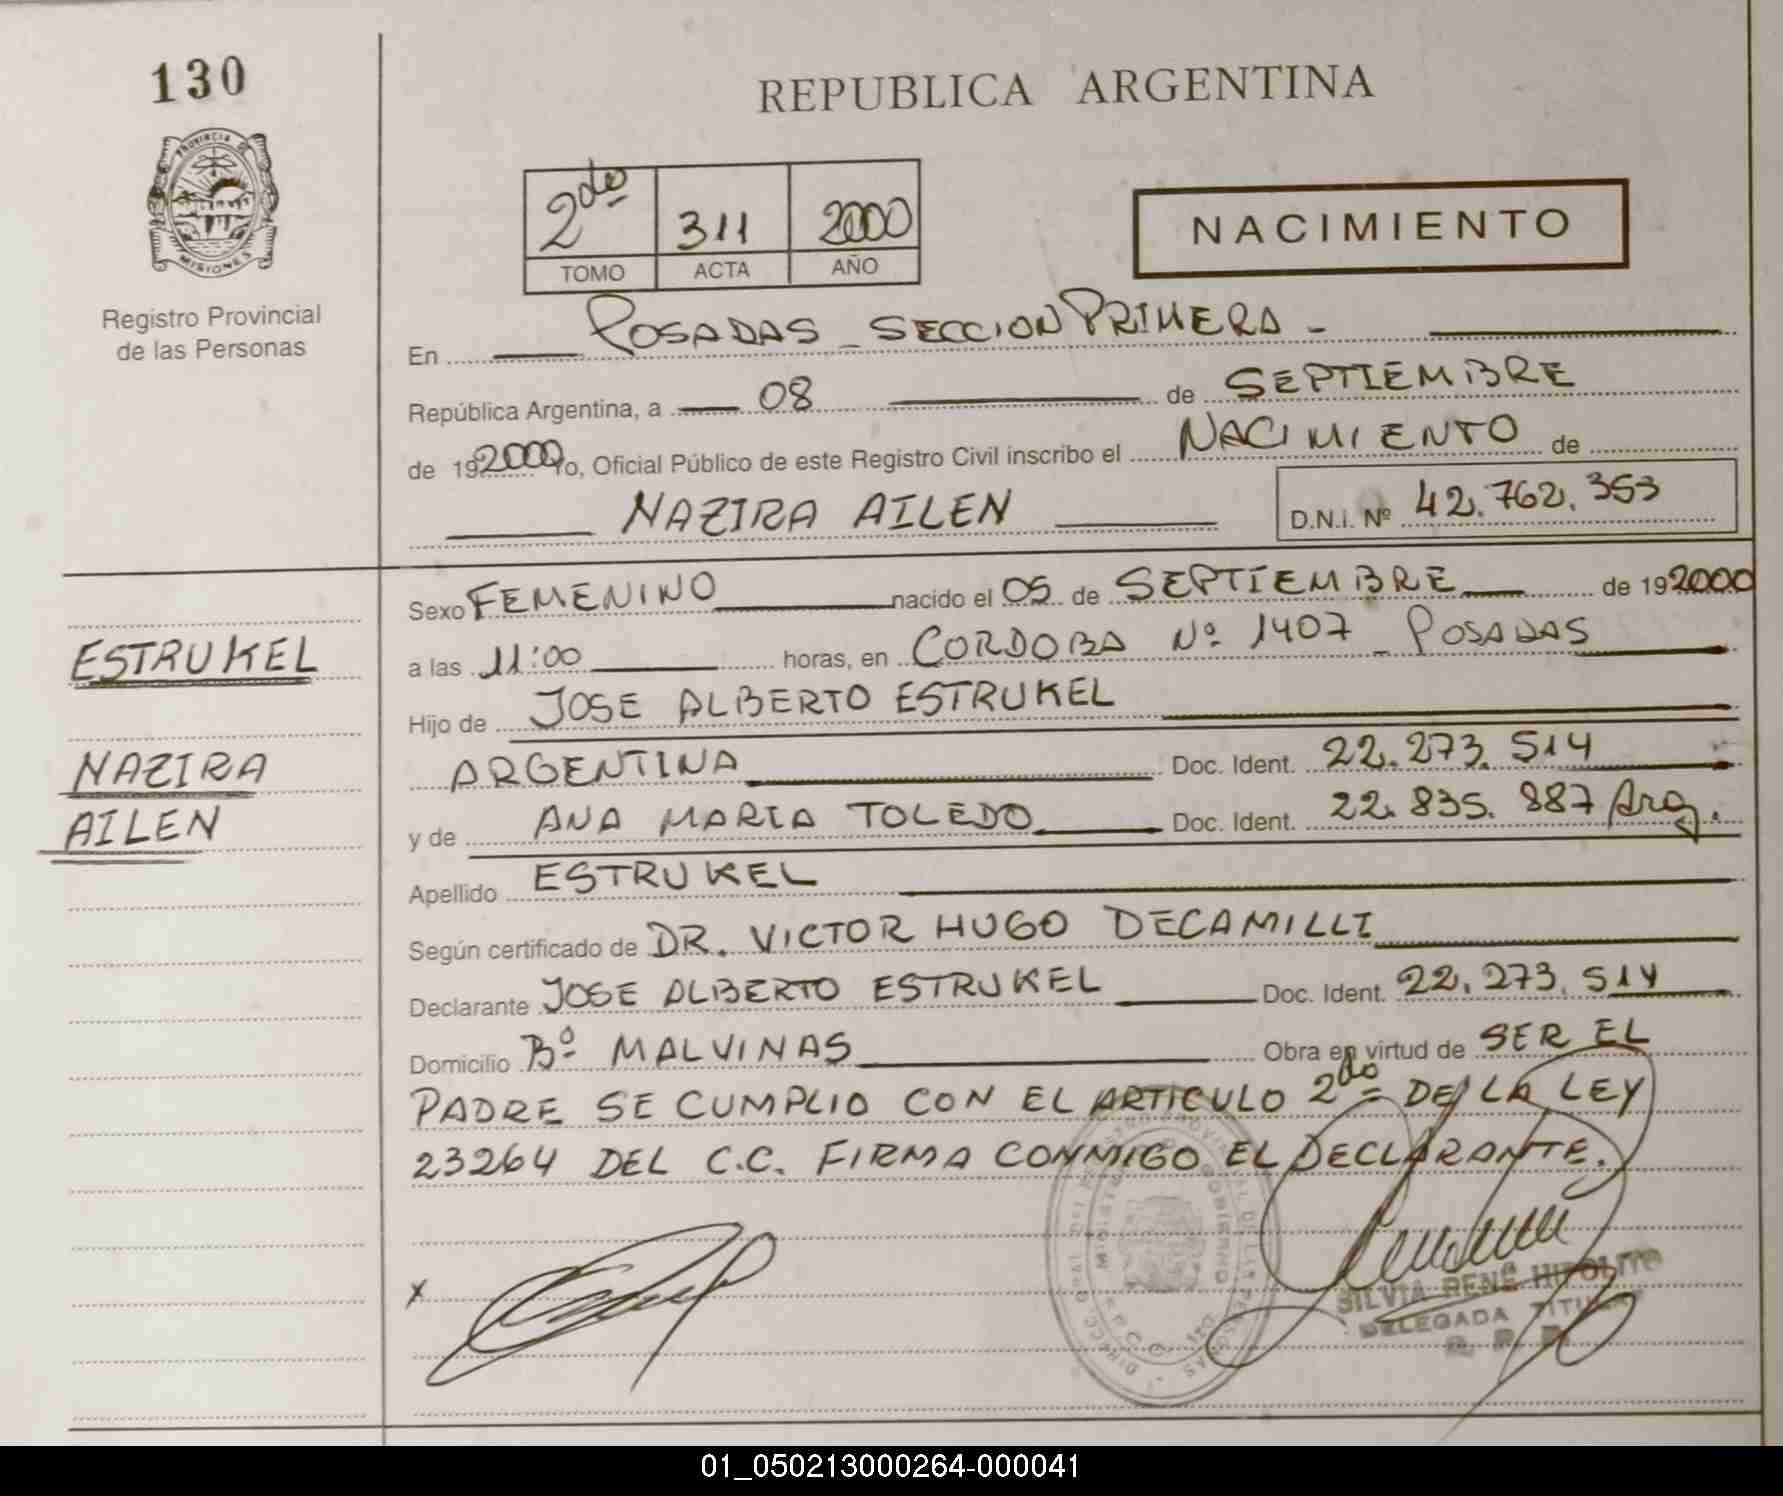 130
REPUBLICA ARGENTINA
PROVINCIA DE
MISIONES
Registro Provincial
de las Personas
2do 311 2000
TOMO ACTA AÑO
NACIMIENTO
En POSADAS - SECCION PRIMERA -
República Argentina, a 08 de SEPTIEMBRE
de 192000 Yo, Oficial Público de este Registro Civil inscribo el NACIMIENTO de
NAZIRA AILEN D.N.I. Nº 42.762.353
ESTRUKEL
NAZIRA
AILEN
Sexo FEMENINO nacido el 05 de SEPTIEMBRE de 192000
a las 11:00 horas, en CORDOBA Nº 1407 - POSADAS
Hijo de JOSE ALBERTO ESTRUKEL
ARGENTINA Doc. Ident. 22.273.514
y de ANA MARIA TOLEDO Doc. Ident. 22.835.887 Arg.
Apellido ESTRUKEL
Según certificado de DR. VICTOR HUGO DECAMILLI
Declarante JOSE ALBERTO ESTRUKEL Doc. Ident. 22.273.514
Domicilio Bº MALVINAS Obra en virtud de SER EL
PADRE SE CUMPLIO CON EL ARTICULO 2do DE LA LEY
23264 DEL C.C. FIRMA CONMIGO EL DECLARANTE.
X
SILVIA RENE HIPOLITO
DELEGADA TITULAR
01_050213000264-000041